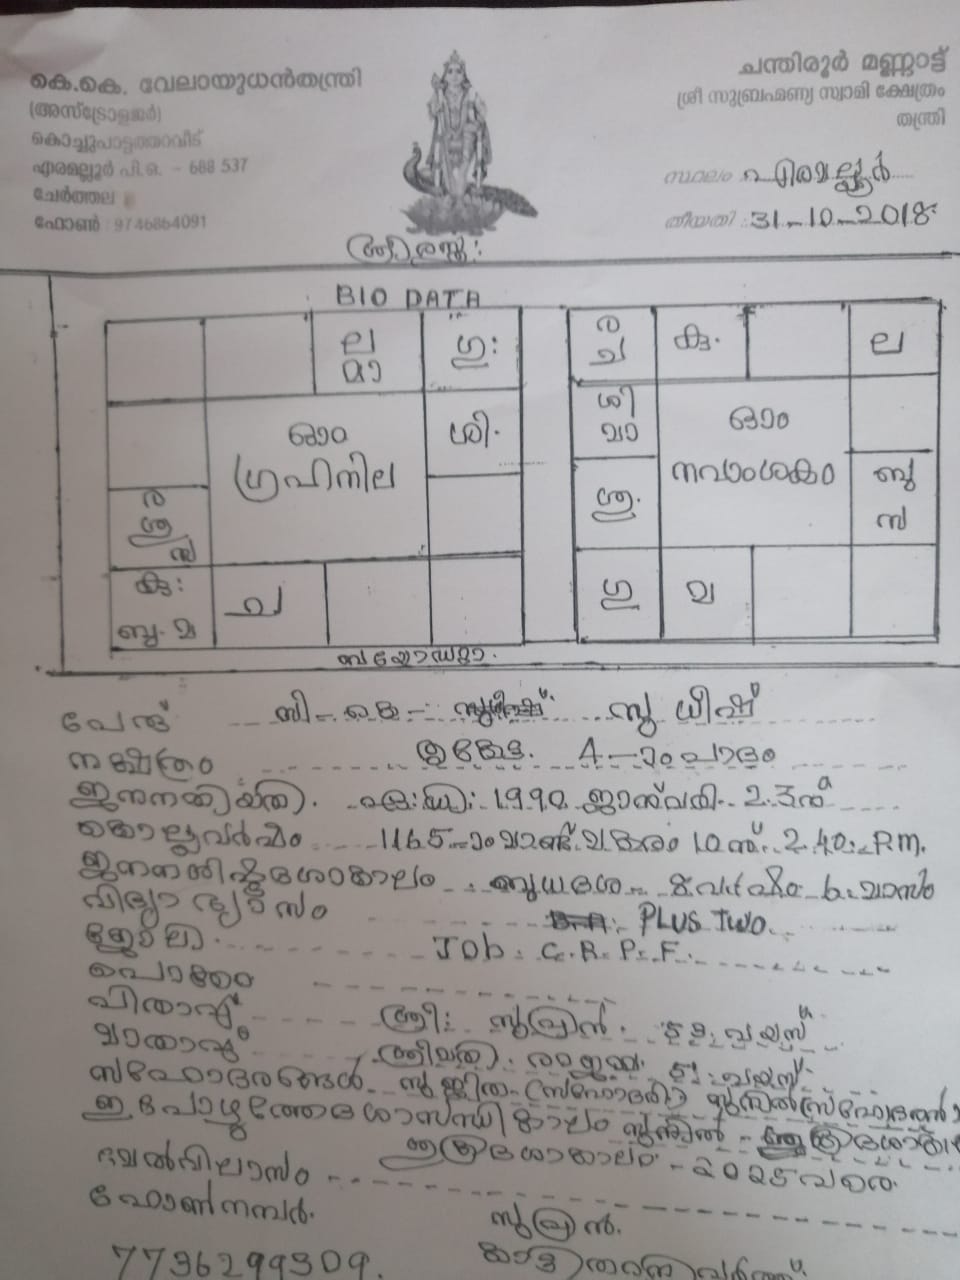 കെ.കെ. വേലായുധൻതന്ത്രി
(അസ്ട്രോളജർ)
കൊച്ചുപാട്ടത്താവീട്
എരമല്ലൂർ പി.ഒ. - 688 537
ചേർത്തല
ഫോൺ : 9746864091
ചന്തിരൂർ മണ്ണാട്ട്
ശ്രീ സുബ്രഹ്മണ്യ സ്വാമി ക്ഷേത്രം
തന്ത്രി
സ്ഥലം എരമല്ലൂർ
തീയതി : 31-10-2018
BIO DATA
ല
മാ
ഗു:
ശി.
ഓം
ഗ്രഹനില
ര
ശു
സ
കു:
ബു. മ
ച
ര
ച
കു.
ല
ശി
മാ
ഓം
നവാംശകം
ബു
സ
ശു.
ഗു
മ
പേര് സി-കെ- സുധീഷ്
നക്ഷത്രം തൃക്കേട്ട. 4-ാം പാദം
ജനനതിയ്യതി. 1990 ജനുവരി 23ന്
കൊല്ലവർഷം 1165-ാമാണ്ട് മകരം 10ന് 2.40. P.M.
ജനനശിഷ്ടദശാകാലം ബുധദശ 8 വർഷം 6 മാസം
വിദ്യാഭ്യാസം PLUS TWO.
ജോലി. Job. C.R.P.F.
പൊക്കം
പിതാവ് ശ്രീ: സുപ്രൻ. വയസ്
മാതാവ് ശ്രീമതി. 51 വയസ്
സഹോദരങ്ങൾ സുജിത (സഹോദരി) സുനിൽ (സഹോദരൻ)
ഇപ്പോഴത്തെ ദശാസന്ധികാലം
ദശാകാലം - 2025 വരെ
മേൽവിലാസം
ഫോൺനമ്പർ. സുപ്രൻ.
7736299309.